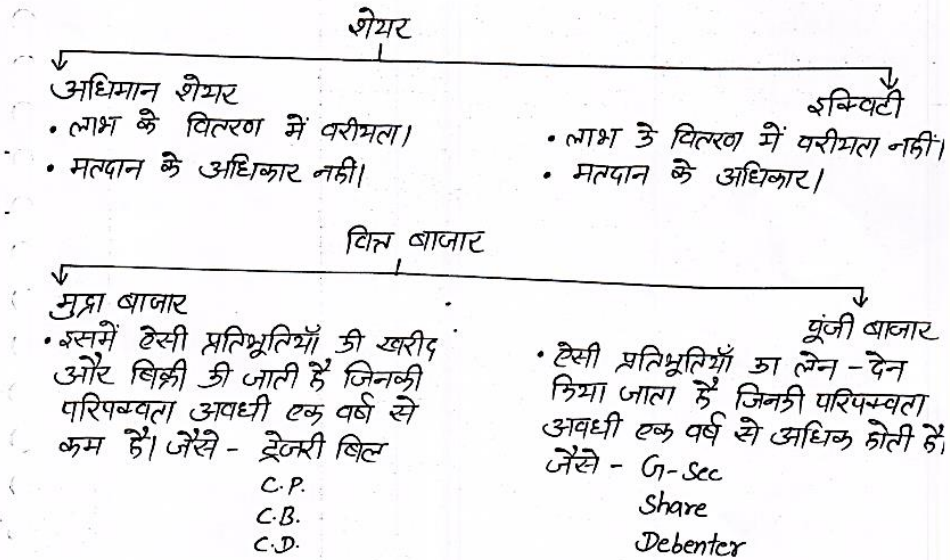 शेयर
अधिमान शेयर
• लाभ के वितरण में वरीयता।
• मतदान के अधिकार नहीं।
इक्विटी
• लाभ के वितरण में वरीयता नहीं।
• मतदान के अधिकार।
वित्त बाजार
मुद्रा बाजार
• इसमें ऐसी प्रतिभूतियाँ की खरीद
और बिक्री की जाती है जिनकी
परिपक्वता अवधी एक वर्ष से
कम है। जैसे - ट्रेजरी बिल
C.P.
C.B.
C.D.
पूंजी बाजार
• ऐसी प्रतिभूतियाँ का लेन - देन
किया जाता है जिनकी परिपक्वता
अवधी एक वर्ष से अधिक होती है।
जैसे - G-Sec
Share
Debenter